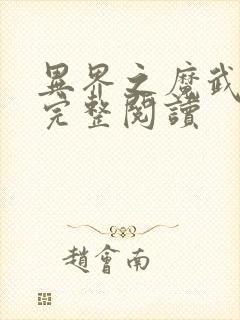 異界之魔武
完整閱讀
趙會南